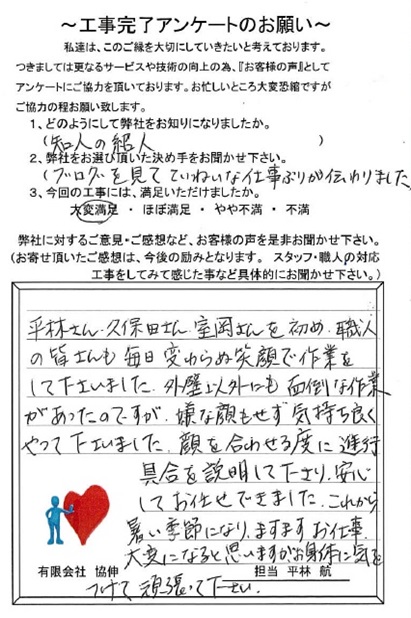 ～工事完了アンケートのお願い～
私達は、このご縁を大切にしていきたいと考えております。
つきましては更なるサービスや技術の向上の為、『お客様の声』として
アンケートにご協力を頂いております。お忙しいところ大変恐縮ですが
ご協力の程お願い致します。
1、どのようにして弊社をお知りになりましたか。
(知人の紹人)
2、弊社をお選び頂いた決め手をお聞かせ下さい。
(ブログを見てていねいな仕事ぶりが伝わりました)
3、今回の工事には、満足いただけましたか。
大変満足 ・ ほぼ満足 ・ やや不満 ・ 不満
弊社に対するご意見・ご感想など、お客様の声を是非お聞かせ下さい。
(お寄せ頂いたご感想は、今後の励みとなります。 スタッフ・職人の対応
工事をしてみて感じた事など具体的にお聞かせ下さい。)
平林さん、久保田さん、室岡さんを初め、職人
の皆さんも毎日変わらぬ笑顔で作業を
して下さいました。外壁以外にも面倒な作業
があったのですが、嫌な顔もせず気持ち良く
やって下さいました。顔を合わせる度に進行
具合を説明して下さり、安心
してお任せできました。これから
暑い季節になり、ますますお仕事
大変になると思いますがお身体に気を
つけて頑張って下さい。
有限会社 協伸
担当 平林 航